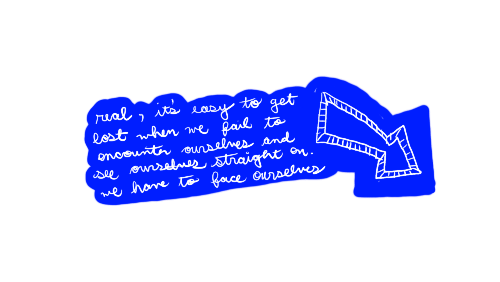 real, it's easy to get
lost when we fail to
encounter ourselves and
see ourselves straight on.
we have to face ourselves